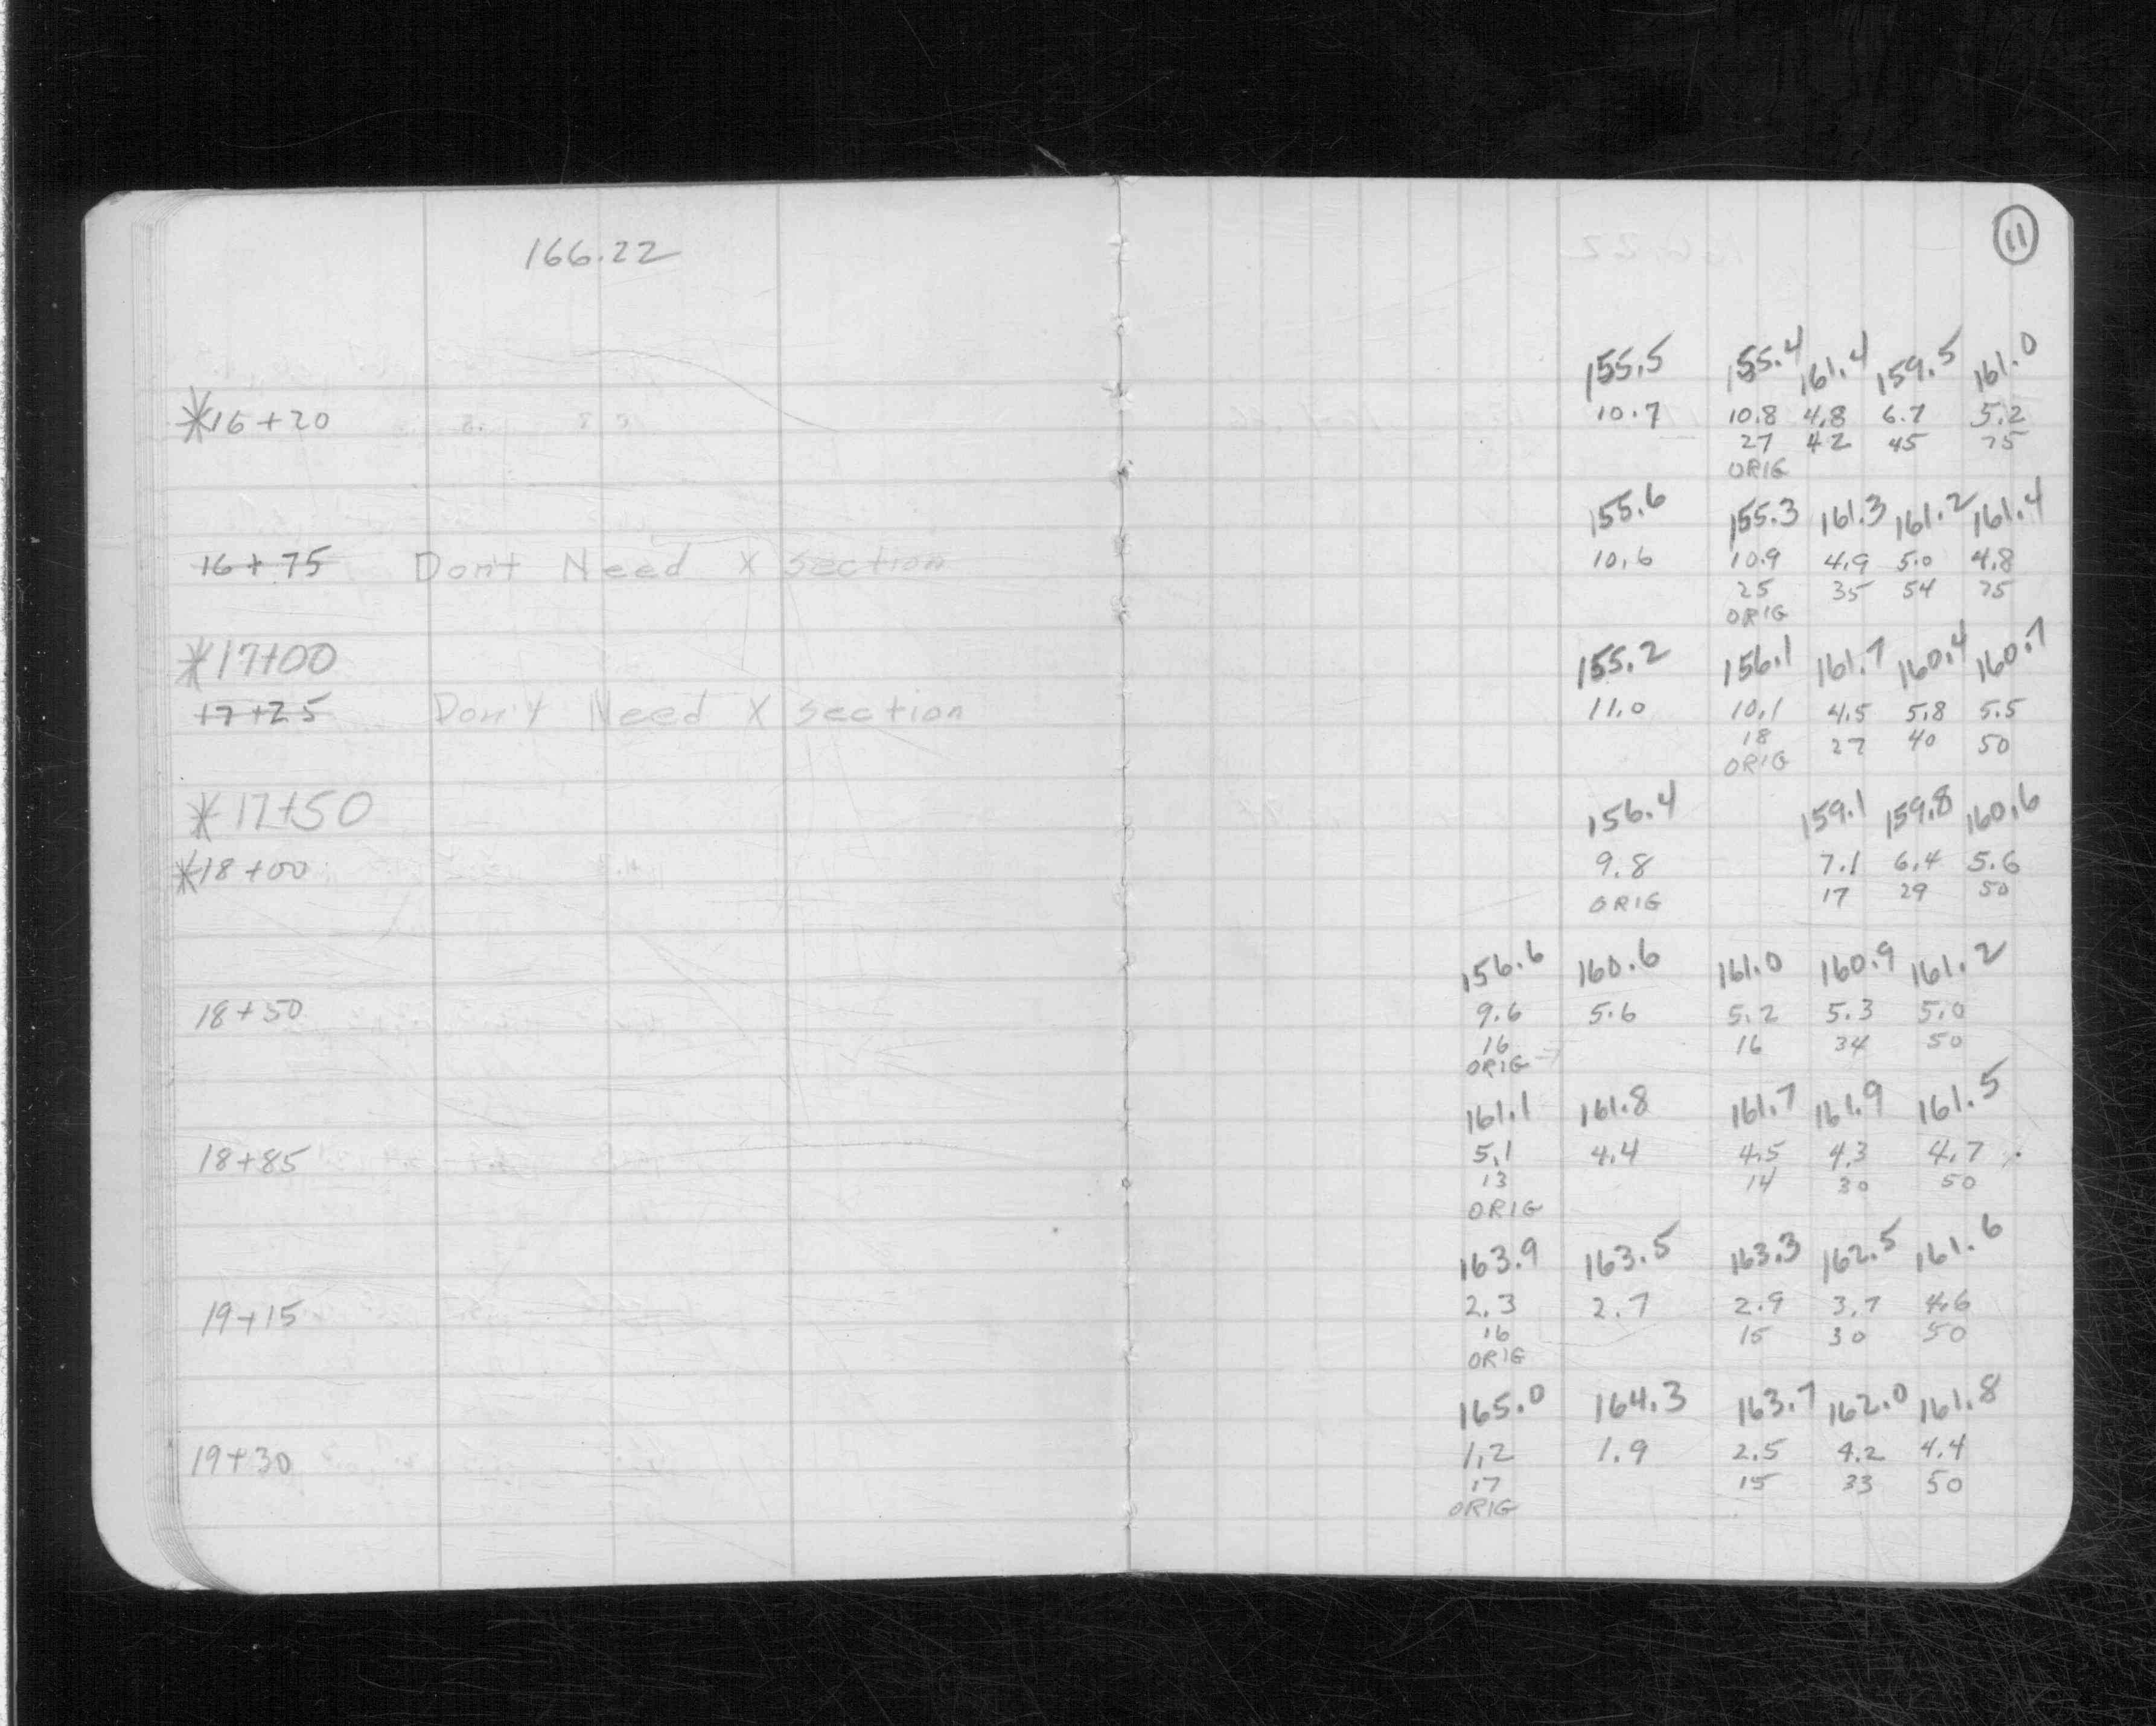 166.22
11
155.5 155.4 161.4 159.5 161.0
*16+20 10.7 10.8 4.8 6.7 5.2
27 42 45 75
ORIG
155.6 155.3 161.3 161.2 161.4
16+75 Don't Need X section 10.6 10.9 4.9 5.0 4.8
25 35 54 75
ORIG
*17+00 155.2 156.1 161.7 160.4 160.7
17+25 Don't Need X section 11.0 10.1 4.5 5.8 5.5
18 27 40 50
ORIG
*17+50 156.4 159.1 159.8 160.6
*18+00 9.8 7.1 6.4 5.6
ORIG 17 29 50
156.6 160.6 161.0 160.9 161.2
18+50 9.6 5.6 5.2 5.3 5.0
16 16 34 50
ORIG
161.1 161.8 161.7 161.9 161.5
18+85 5.1 4.4 4.5 4.3 4.7
13 14 30 50
ORIG
163.9 163.5 163.3 162.5 161.6
19+15 2.3 2.7 2.9 3.7 4.6
16 15 30 50
ORIG
165.0 164.3 163.7 162.0 161.8
19+30 1.2 1.9 2.5 4.2 4.4
17 15 33 50
ORIG